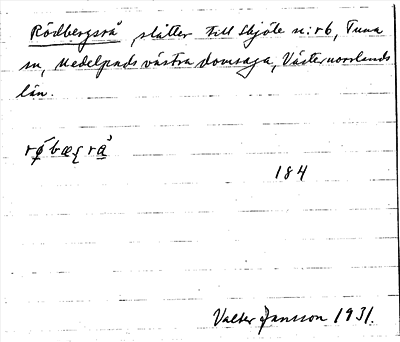 Rödbergsrå slåtter till Skjöle n:r 6, Tuna
sn, Medelpads västra domsaga, Västernorrlands
län.
rǿbæçrå̀
184
Valter Jansson 1931.